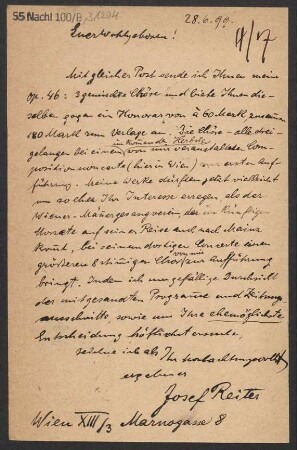 55 Nachl 100/B, 31204
28.6.99.
Euer Wohlgeboren!
Mit gleicher Post sende ich Ihnen meine
op. 46: 3 gemischte Chöre und biete Ihnen die-
selben gegen ein Honorar von à 60 Mark zusammen
180 Mark zum Verlage an. Die Chöre – alle drei –
im kommenden Herbste
gelangen bei einem von mir veranstalteten Com-
positionsconcerte (hier in Wien) zur ersten Auf-
führung. Meine Werke dürften jetzt vielleicht
um so eher Ihr Interesse erregen, als der
Wiener-Männergesangverein, der im künftigen
Monate auf seiner Reise auch nach Mainz
kommt, bei seinem dortigen Concerte einen
größeren 8 stimmigen Chor von mir zur Aufführung
bringt. Indem ich um gefällige Durchsicht
der mitgesandten Programme und Zeitungs-
ausschnitte, sowie um Ihre ehemöglichste
Entscheidung höflichst ersuche
zeichne ich als Ihr hochachtungsvollst
ergebener
Josef Reiter
Wien XIII/3 Marnogasse 8